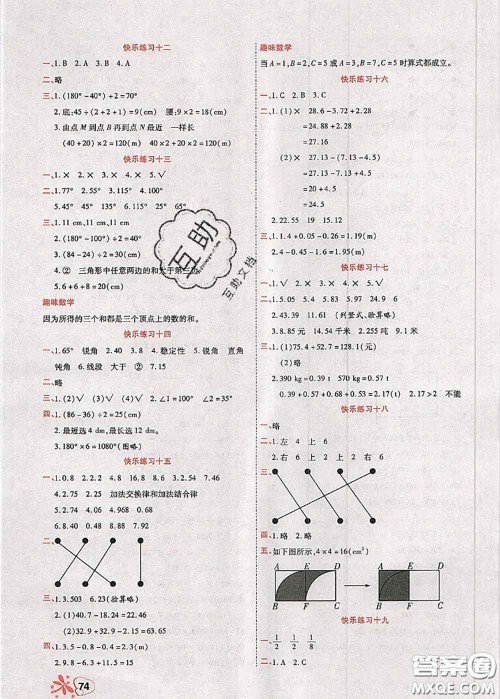 快乐练习十二
一、1.B 2.B 3.A 4.A
二、略
三、1.(180°-40°)÷2=70°
2.底:45÷(2+2+1)=9(cm) 腰:9×2=18(cm)
3.由点M到点B再到点N最近 一样长
(40+20)×2=120(m) 40×2+20×2=120(m)
快乐练习十三
一、1.× 2.× 3.× 4.√ 5.√
二、1.77° 2.55° 3.115° 4.45°
5.45° 45° 135° 6.25° 65°
三、1.11 cm,11 cm 12 cm,10 cm
2.(180°-40°)÷2=70°
3.(84-24)÷2=30(cm)
4.② 三角形中任意两边的和大于第三边
5.6+6+8=20(cm)
趣味数学
因为所得的三个和都是三个顶点上的数的和。
快乐练习十四
一、1.65° 锐角 2.40 3.8 4.稳定性 5.锐角 直角
钝角 6.线段 大于 ② 7.15
二、略
三、(1)√ (2)√ (3)√ (4)× ∠1=60° ∠2=35°
四、1.(86-36)÷2=25(cm)
2.最短选4 dm,最长选9 dm。
3.180°×6=1080°(图略)
快乐练习十五
一、1.0.8 2.8 2.2 2.8 4.9 6.8 1.2 3.8
2.2.75 2.75 加法交换律和加法结合律
3.7.48 5.52 4.1.19 5.9.97 9.97
6.8.40 0.88 6.92 7.08
三、1.3.503 6.23(验算略)
2.(1)40.7-18.7=22(元)
(2)30.9-8.34=22.56
四、1.2.8-0.6-0.6=1.6(m)
2.0.87+0.87+3.8+5.46+4=15(m)
趣味数学
当A=1,B=2,C=5或A=3,B=7,C=5时算式都成立。
快乐练习十六
一、1.C 2.B 3.C
二、1.(1)× 28.6-3.72+2.28
=24.88+2.28
=27.16
(2)× 27.13-(7.13+4.5)
=27.13-7.13-4.5
=20-4.5
=15.5
2.22.55 19 14.65
三、1.4+0.05-0.26=1.19(m)
四、1.4+0.45-0.01=1.84(m)
快乐练习十七
一、1.× 2.× 3.√ 4.√
二、1.7.02 11.41 (列竖式、验算略)
三、1.8.85元 14.54千米 2.255吨 9.1元
四、1.(1)75.4+52.7=128.1(元)
(2)略
2.390 kg=0.39 t 540 kg=0.54 t
0.39+0.54+0.57+0.67=2.17(t) 2.17>2 不能
快乐练习十八
一、略
二、1.左 4 上 6
2.右 6 上 2 上 2 右 6
三、
四、1.略 2.略
五、如下图所示,4×4=16(cm²)
A E D
B F C
A E D
B F C
快乐练习十九
一、1.A 2.C 3.C
二、略
74
互助
互助文档
答案圈
MXQE.COM